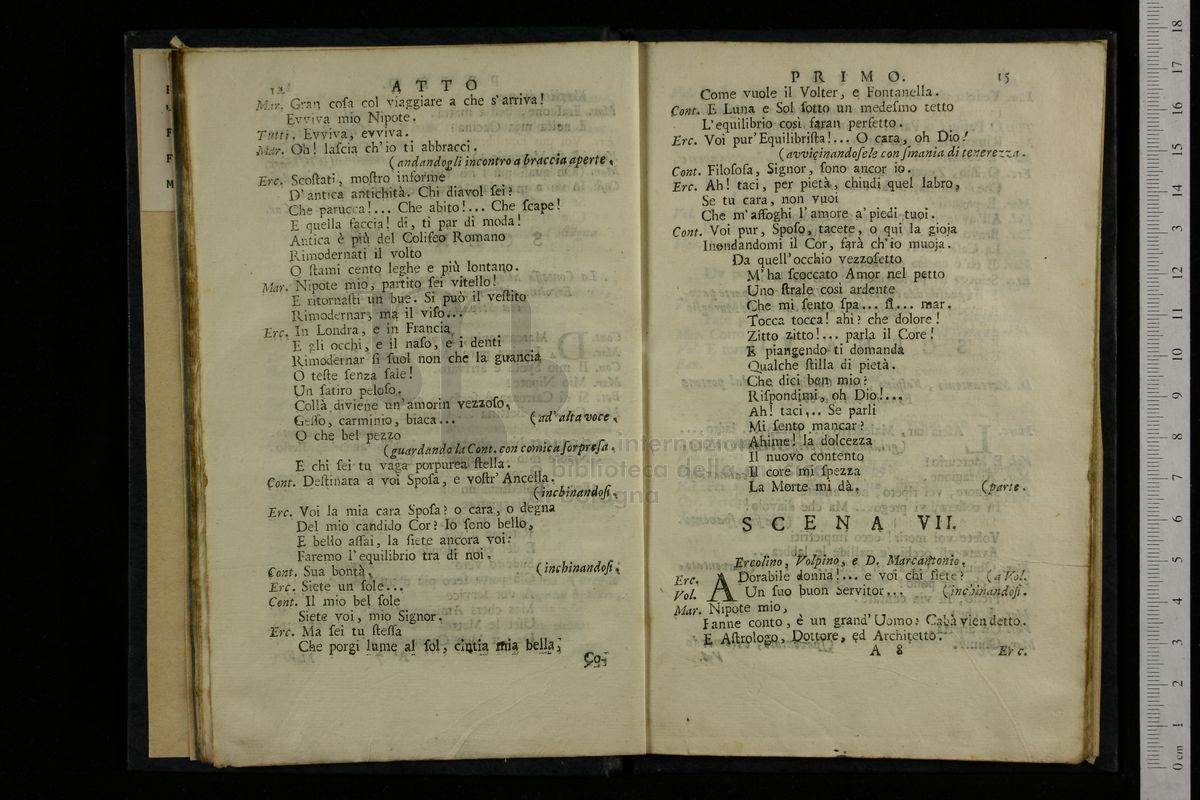 ATTO
Mar. Gran coſa col viaggiare a che s'arriva!
Evviva mio Nipote.
Tutti. Evviva, evviva.
Mar. Oh! laſcia ch'io ti abbracci.
(andandogli incontro a braccia aperte.
Erc. Scoſtati, moſtro informe
D'antica antichità. Chi diavol ſei?
Che parucca!... Che abito!... Che ſcape!
E quella faccia! di, ti par di moda!
Antica è più del Coliſeo Romano
Rimodernati il volto
O ſtami cento leghe e più lontano.
Mar. Nipote mio, partito ſei vitello!
E ritornaſti un bue. Si può il veſtito
Rimodernar, ma il viſo...
Erc. In Londra, e in Francia
E gli occhi, e il naſo, e i denti
Rimodernar ſi ſuol non che la guancia
O teſte ſenza ſale!
Un ſatiro peloſo,
Collà diviene un'amorin vezzoſo,
Geſſo, carminio, biaca... (ad' alta voce.
O che bel pezzo
(guardando la Cont. con comica ſorpreſa.
E chi ſei tu vaga porpurea ſtella.
Cont. Deſtinata a voi Spoſa, e voſtr'Ancella.
(inchinandoſi.
Erc. Voi la mia cara Spoſa? o cara, o degna
Del mio candido Cor? Io ſono bello,
E bello aſſai, la ſiete ancora voi:
Faremo l'equilibrio tra di noi.
Cont. Sua bontà, (inchinandoſi.
Erc. Siete un ſole...
Cont. Il mio bel ſole
Siete voi, mio Signor.
Erc. Ma ſei tu ſteſſa
Che porgi lume al ſol, cintia mia bella,
Co-
PRIMO. 15
Come vuole il Volter, e Fontanella.
Cont. E Luna e Sol ſotto un medeſmo tetto
L'equilibrio così ſaran perfetto.
Erc. Voi pur'Equilibriſta!... O cara, oh Dio!
(avvicinandoſele con ſmania di tenerezza.
Cont. Filoſofa, Signor, ſono ancor io.
Erc. Ah! taci, per pietà, chiudi quel labro,
Se tu cara, non vuoi
Che m'aſſoghi l'amore a'piedi tuoi.
Cont. Voi pur, Spoſo, tacete, o qui la gioja
Inondandomi il Cor, farà ch'io muoja.
Da quell'occhio vezzoſetto
M'ha ſcoccato Amor nel petto
Uno ſtrale così ardente
Che mi ſento ſpa... ſi... mar.
Tocca tocca! ahi? che dolore!
Zitto zitto!... parla il Core!
E piangendo ti domanda
Qualche ſtilla di pietà.
Che dici ben mio?
Riſpondimi, oh Dio!...
Ah! taci,.. Se parli
Mi ſento mancar?
Ahime! la dolcezza
Il nuovo contento
Il core mi ſpezza
La Morte mi dà. (parte.
SCENA VII.
Ercolino, Volpino, e D. Marcantonio.
Erc. Adorabile donna!... e voi chi ſiete? (a Vol.
Vol. Un ſuo buon Servitor... (inchinandoſi.
Mar. Nipote mio,
Fanne conto, è un grand'Uomo? Cabà vien detto.
E Aſtrologo, Dottore, ed Architetto.
A 8 Erc.